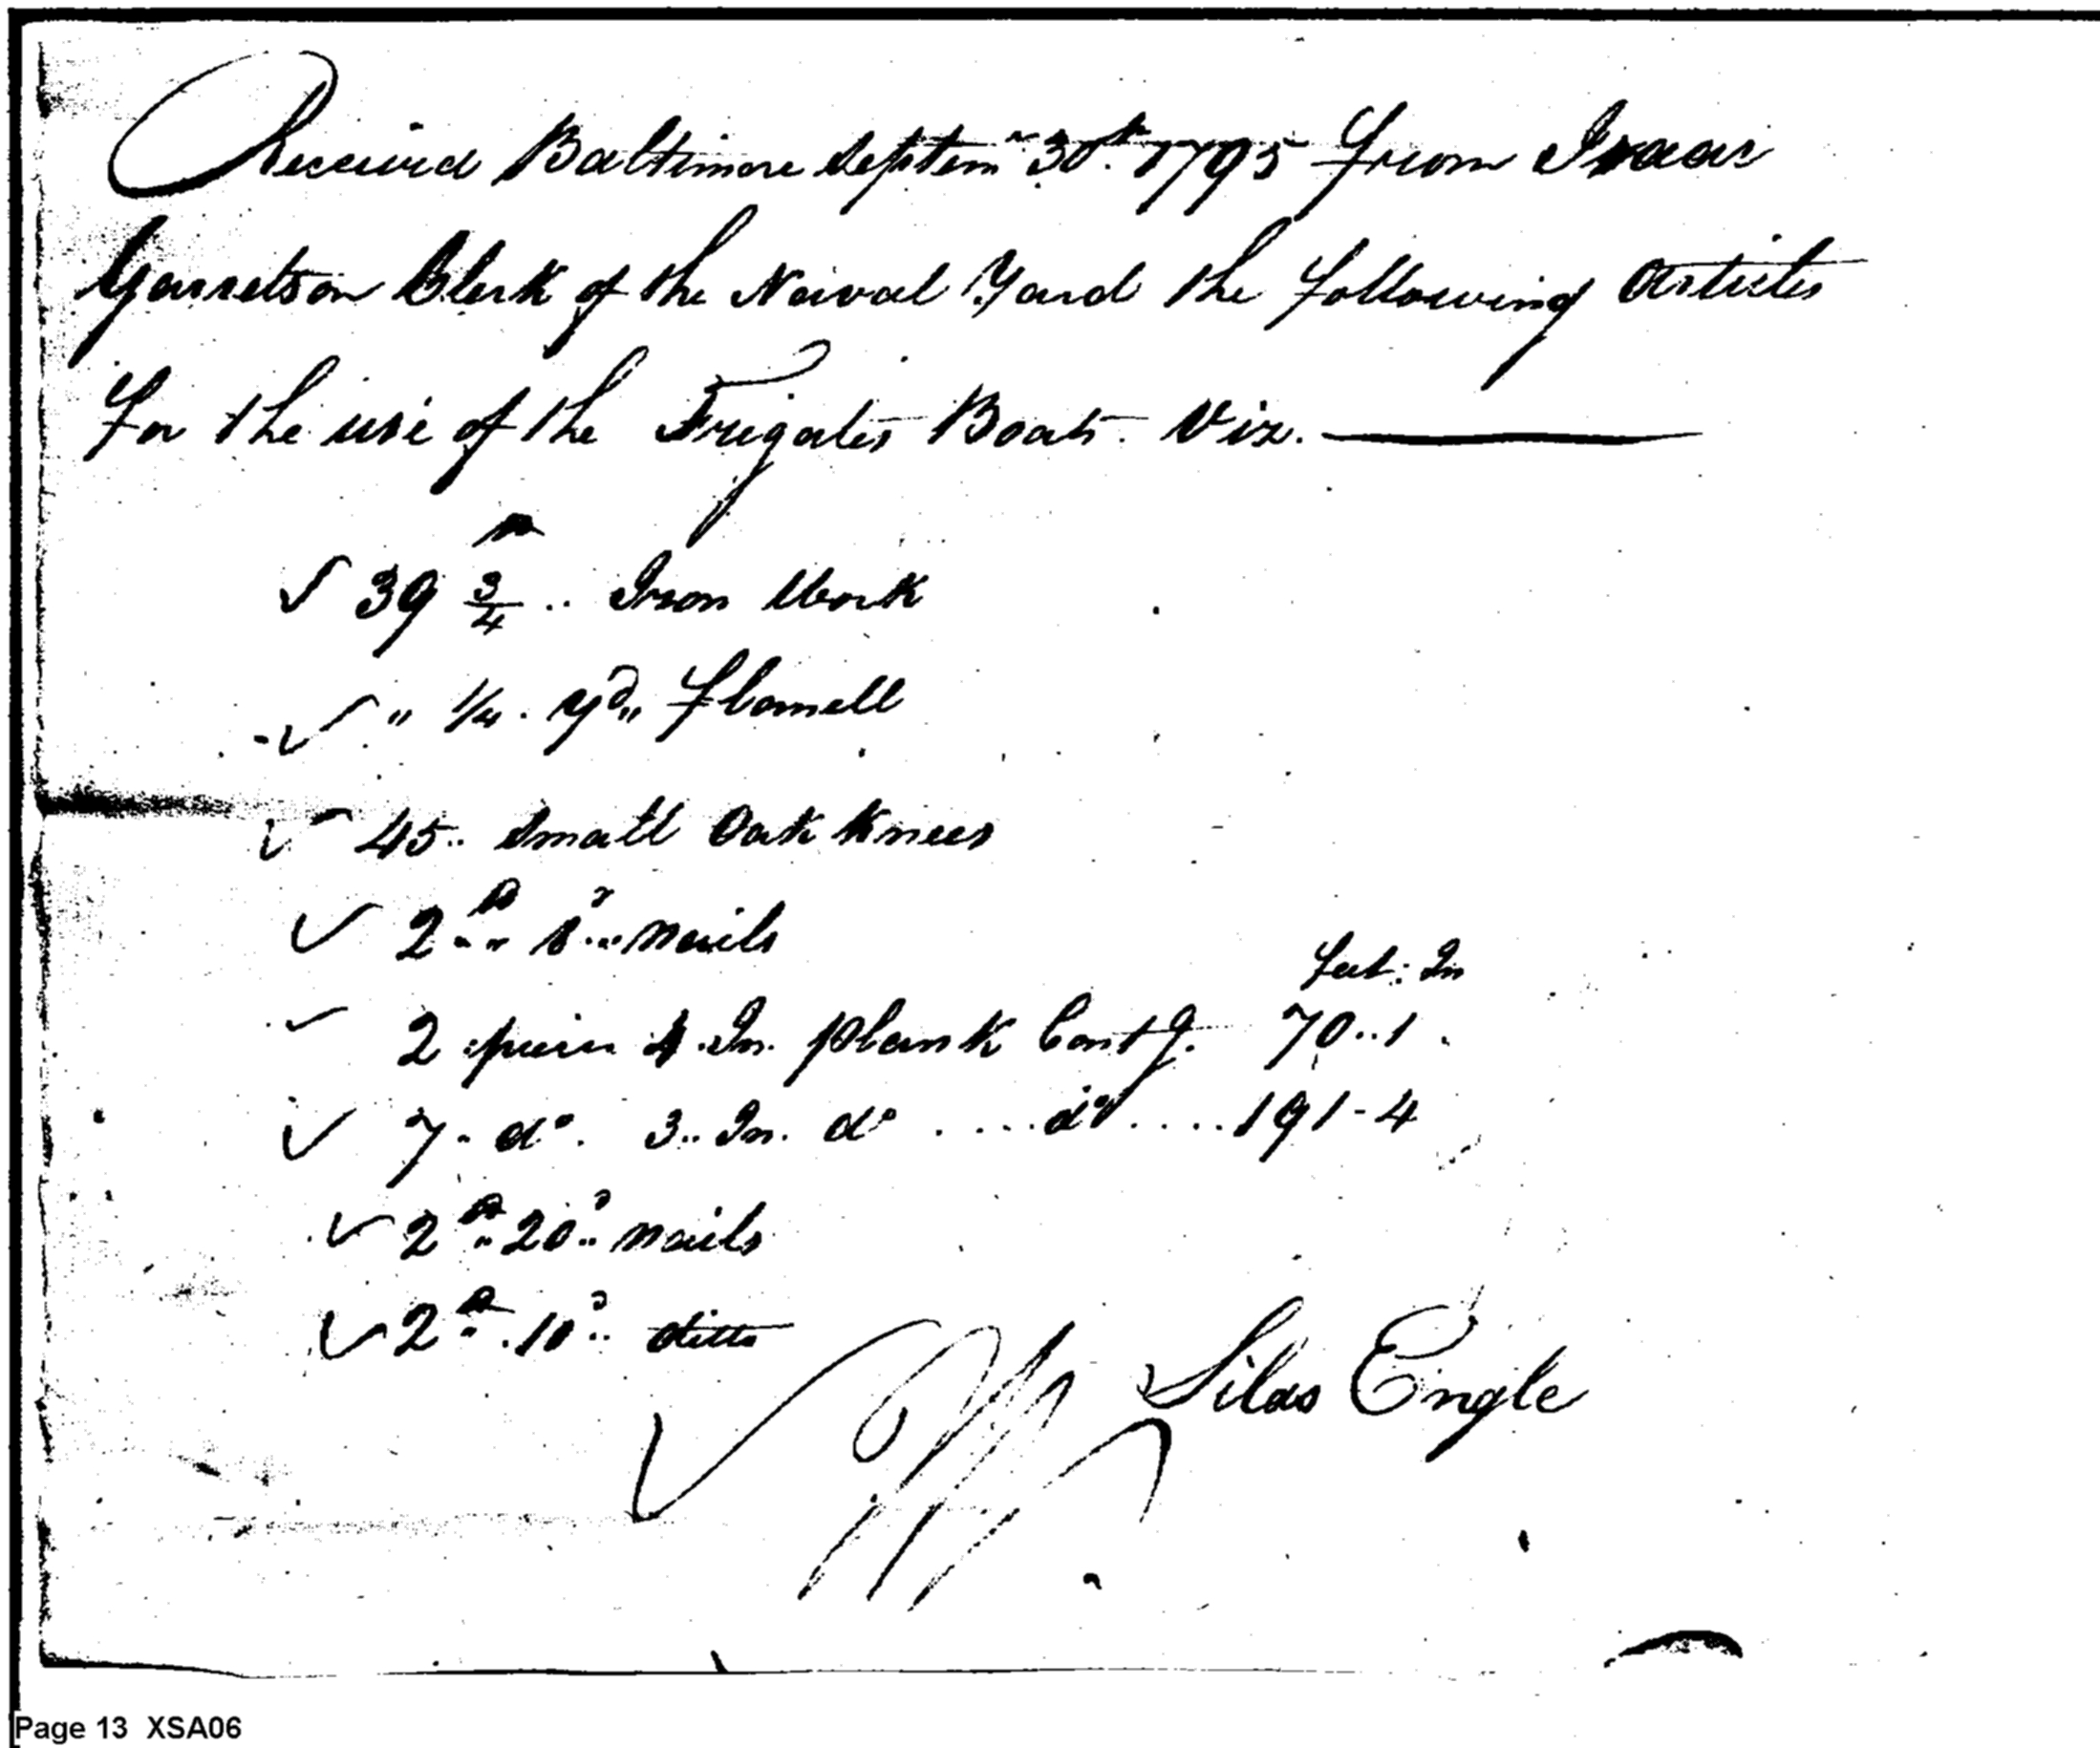 Received Baltimore Septemr 30th 1795 from Isaac
Garretson Clerk of the Naval Yard the following Articles
for the use of the Frigates Boats Viz.
39 3/4 .. Iron Work
" 1/4 . yd " flannell
45 .. Small Oak Knees
2 .. 8d .. nails
feet : In
2 pieces 4 In. plank Contg. 70 .. 1
7 . do . 3 .. In. do .... do .... 191 - 4
2 .. 20d .. nails
2 .. 10d .. ditto
Silas Engle
Page 13 XSA06